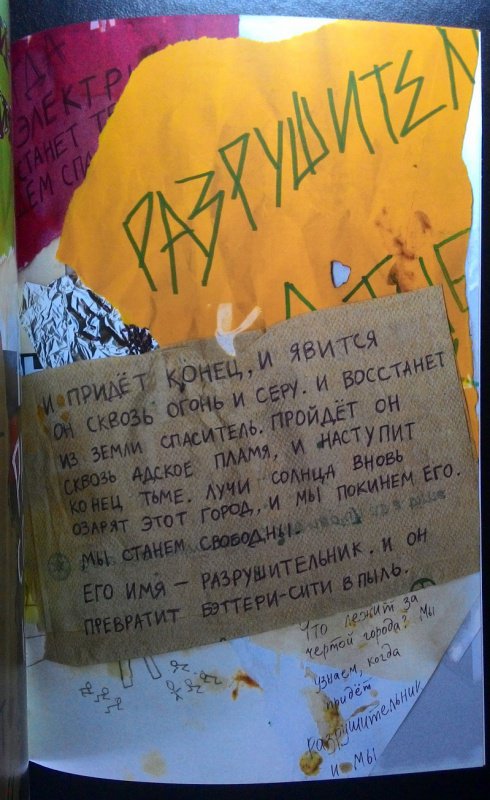 ЭЛЕКТРИ
СТАНЕТ ТЕ
ЕМ СПА
РАЗРУШИТЕЛ
И ПРИДЁТ КОНЕЦ, И ЯВИТСЯ
ОН СКВОЗЬ ОГОНЬ И СЕРУ. И ВОССТАНЕТ
ИЗ ЗЕМЛИ СПАСИТЕЛЬ. ПРОЙДЁТ ОН
СКВОЗЬ АДСКОЕ ПЛАМЯ, И НАСТУПИТ
КОНЕЦ ТЬМЕ. ЛУЧИ СОЛНЦА ВНОВЬ
ОЗАРЯТ ЭТОТ ГОРОД, И МЫ ПОКИНЕМ ЕГО.
МЫ СТАНЕМ СВОБОДНЫ.
ЕГО ИМЯ — РАЗРУШИТЕЛЬНИК. И ОН
ПРЕВРАТИТ БЭТТЕРИ-СИТИ В ПЫЛЬ.
Что лежит за
чертой города? Мы
узнаем, когда
придёт
Разрушительник
и мы